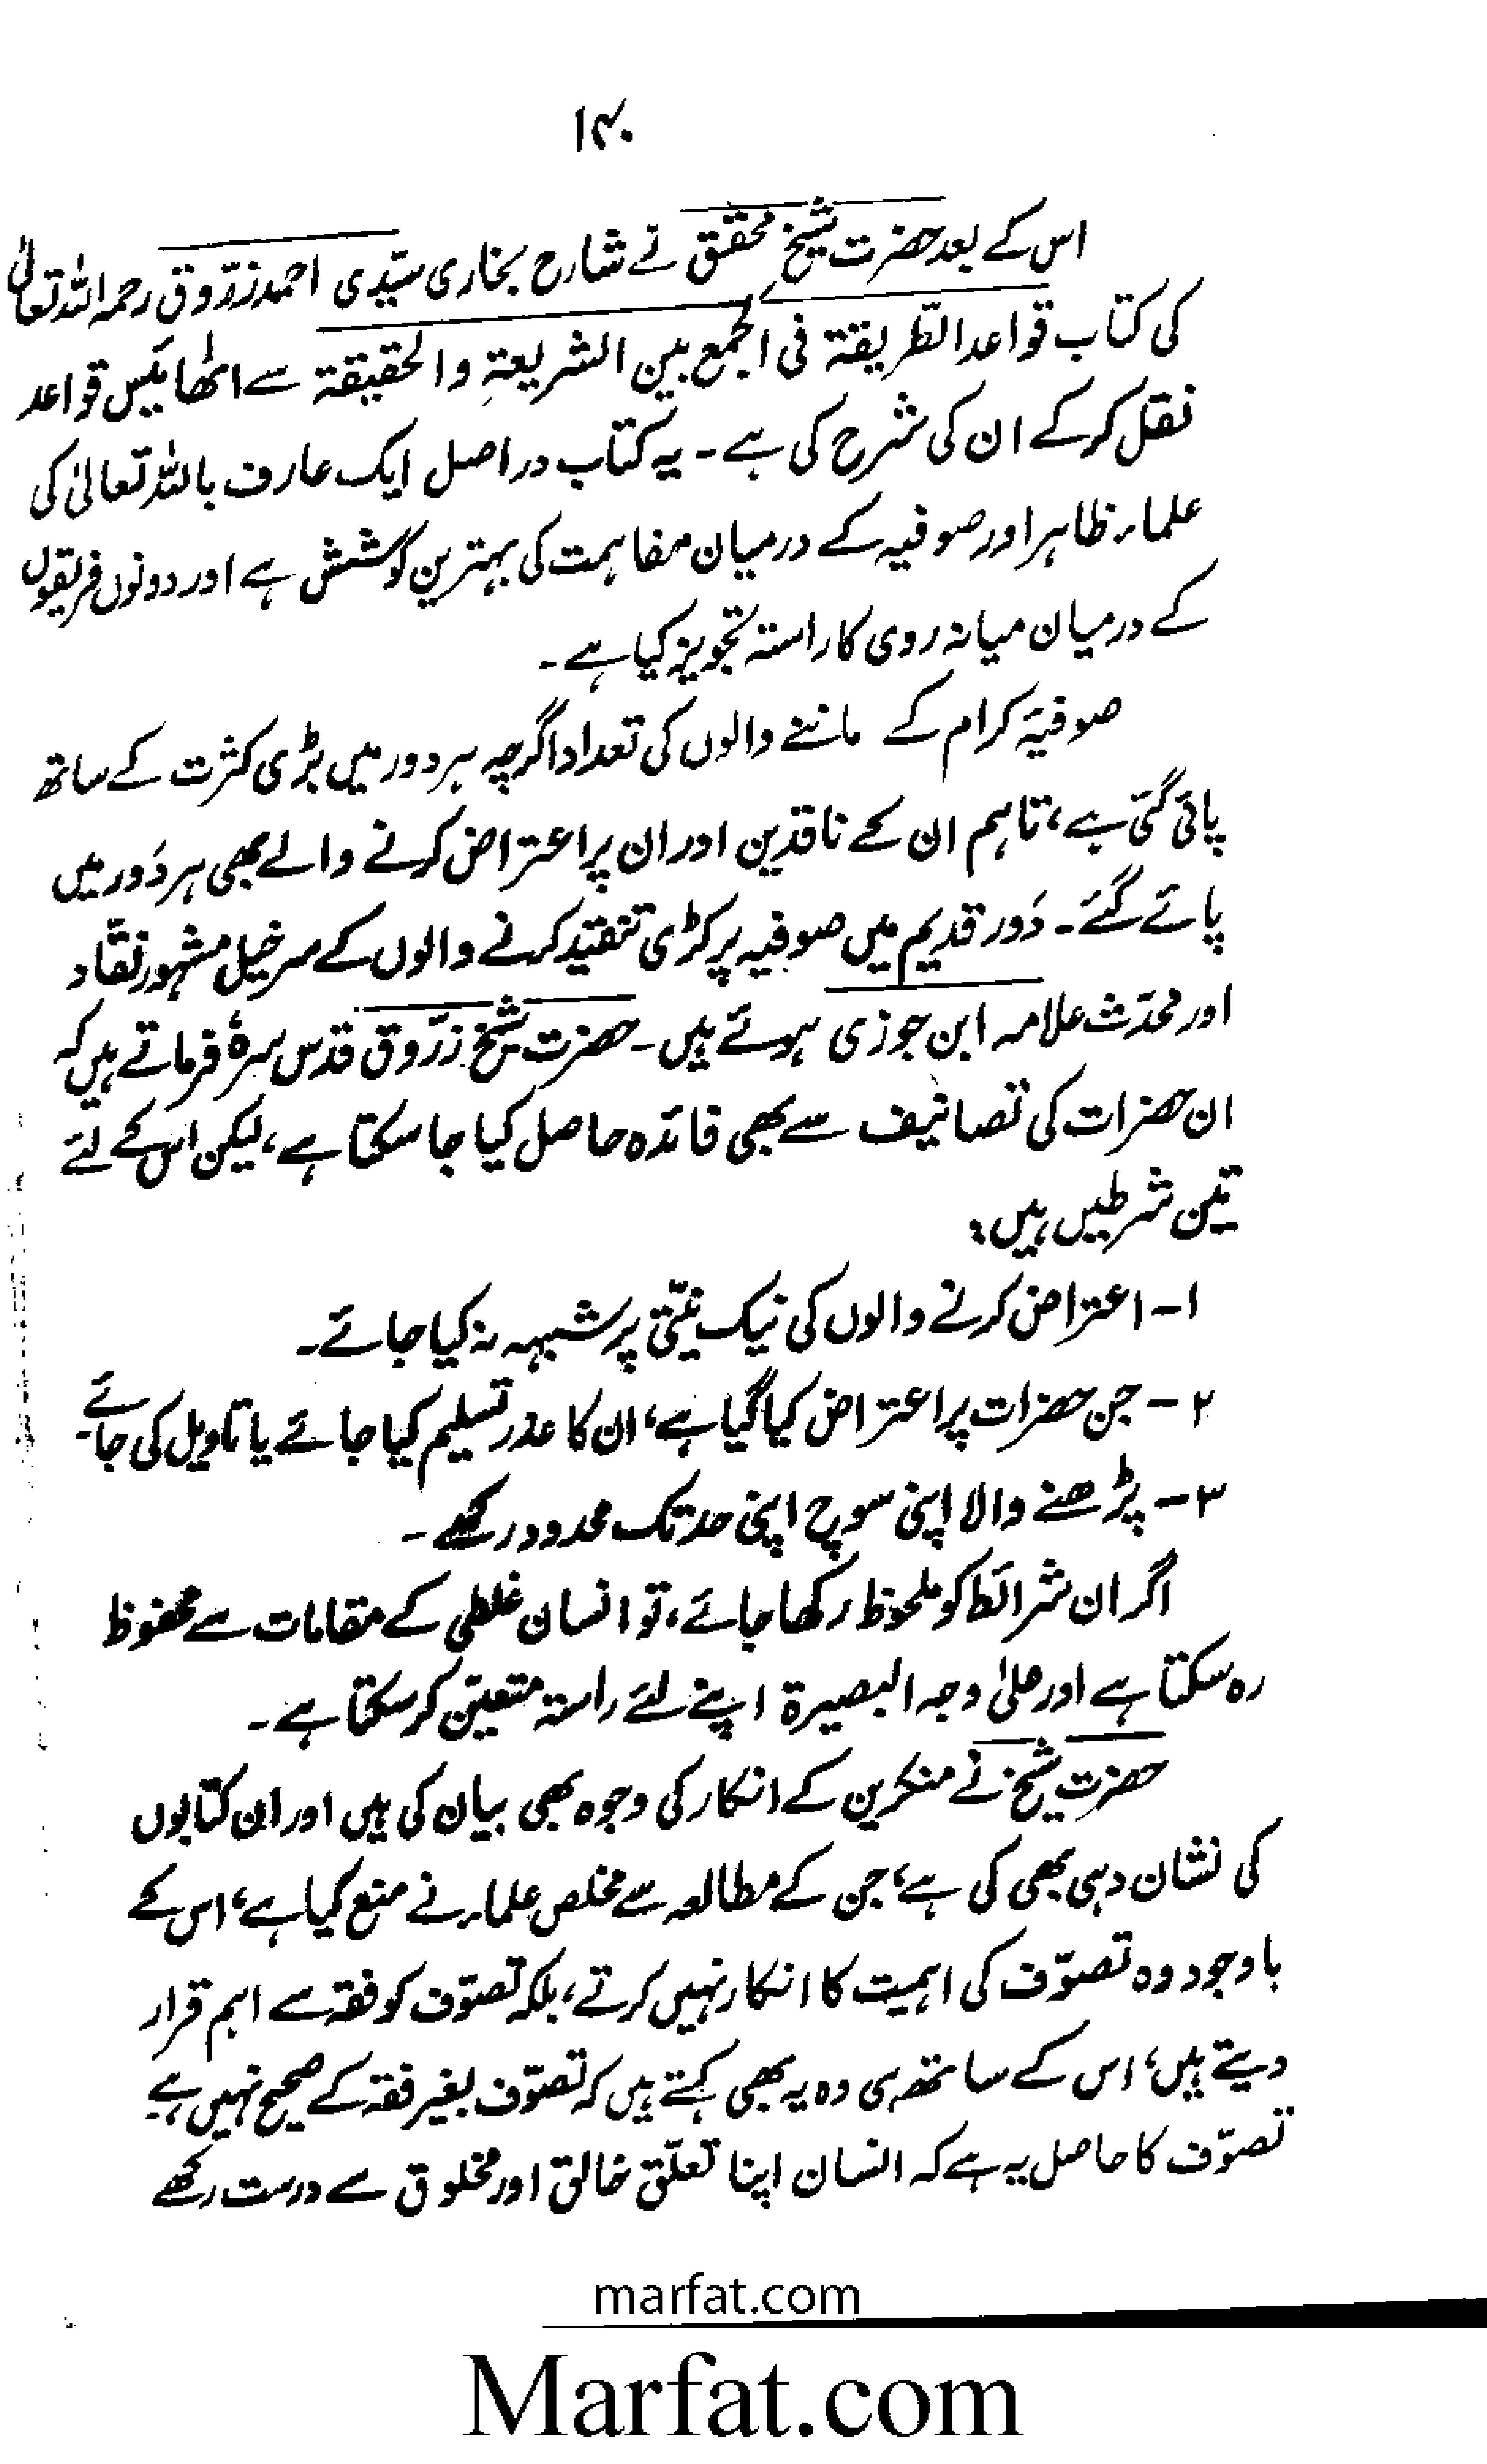 ۱۴۰
اس کے بعد حضرت شیخ محقق نے شارح بخاری سیّدی احمد زرّوق رحمہ اللہ تعالیٰ
کی کتاب قواعد الطّریقۃ فی الجمع بین الشریعۃ والحقیقۃ سے اٹھائیس قواعد
نقل کر کے ان کی شرح کی ہے۔ یہ کتاب دراصل ایک عارف باللہ تعالیٰ کی
علماء ظاہر اور صوفیہ کے درمیان مفاہمت کی بہترین کوشش ہے اور دونوں فریقوں
کے درمیان میانہ روی کا راستہ تجویز کیا ہے۔
صوفیۂ کرام کے ماننے والوں کی تعداد اگرچہ ہر دور میں بڑی کثرت کے ساتھ
پائی گئی ہے، تاہم ان کے ناقدین اور ان پر اعتراض کرنے والے بھی ہر دَور میں
پائے گئے۔ دَور قدیم میں صوفیہ پر کڑی تنقید کرنے والوں کے سرخیل مشہور نقّاد
اور محدّث علامہ ابن جوزی ہوئے ہیں۔ حضرت شیخ زرّوق قدس سرہٗ فرماتے ہیں کہ
ان حضرات کی تصانیف سے بھی فائدہ حاصل کیا جا سکتا ہے، لیکن اس کے لئے
تین شرطیں ہیں:
۱۔ اعتراض کرنے والوں کی نیک نیّتی پر شبہہ نہ کیا جائے۔
۲۔ جن حضرات پر اعتراض کیا گیا ہے، ان کا عذر تسلیم کیا جائے یا تاویل کی جائے۔
۳۔ پڑھنے والا اپنی سوچ اپنی حد تک محدود رکھے۔
اگر ان شرائط کو ملحوظ رکھا جائے، تو انسان غلطی کے مقامات سے محفوظ
رہ سکتا ہے اور علیٰ وجہ البصیرۃ اپنے لئے راستہ متعیّن کر سکتا ہے۔
حضرت شیخ نے منکرین کے انکار کی وجوہ بھی بیان کی ہیں اور ان کتابوں
کی نشان دہی بھی کی ہے، جن کے مطالعہ سے مخلص علماء نے منع کیا ہے، اس کے
باوجود وہ تصوّف کی اہمیت کا انکار نہیں کرتے، بلکہ تصوّف کو فقہ سے اہم قرار
دیتے ہیں، اس کے ساتھ ہی وہ یہ بھی کہتے ہیں کہ تصوّف بغیر فقہ کے صحیح نہیں ہے۔
تصوّف کا حاصل یہ ہے کہ انسان اپنا تعلّق خالق اور مخلوق سے درست رکھے
marfat.com
Marfat.com